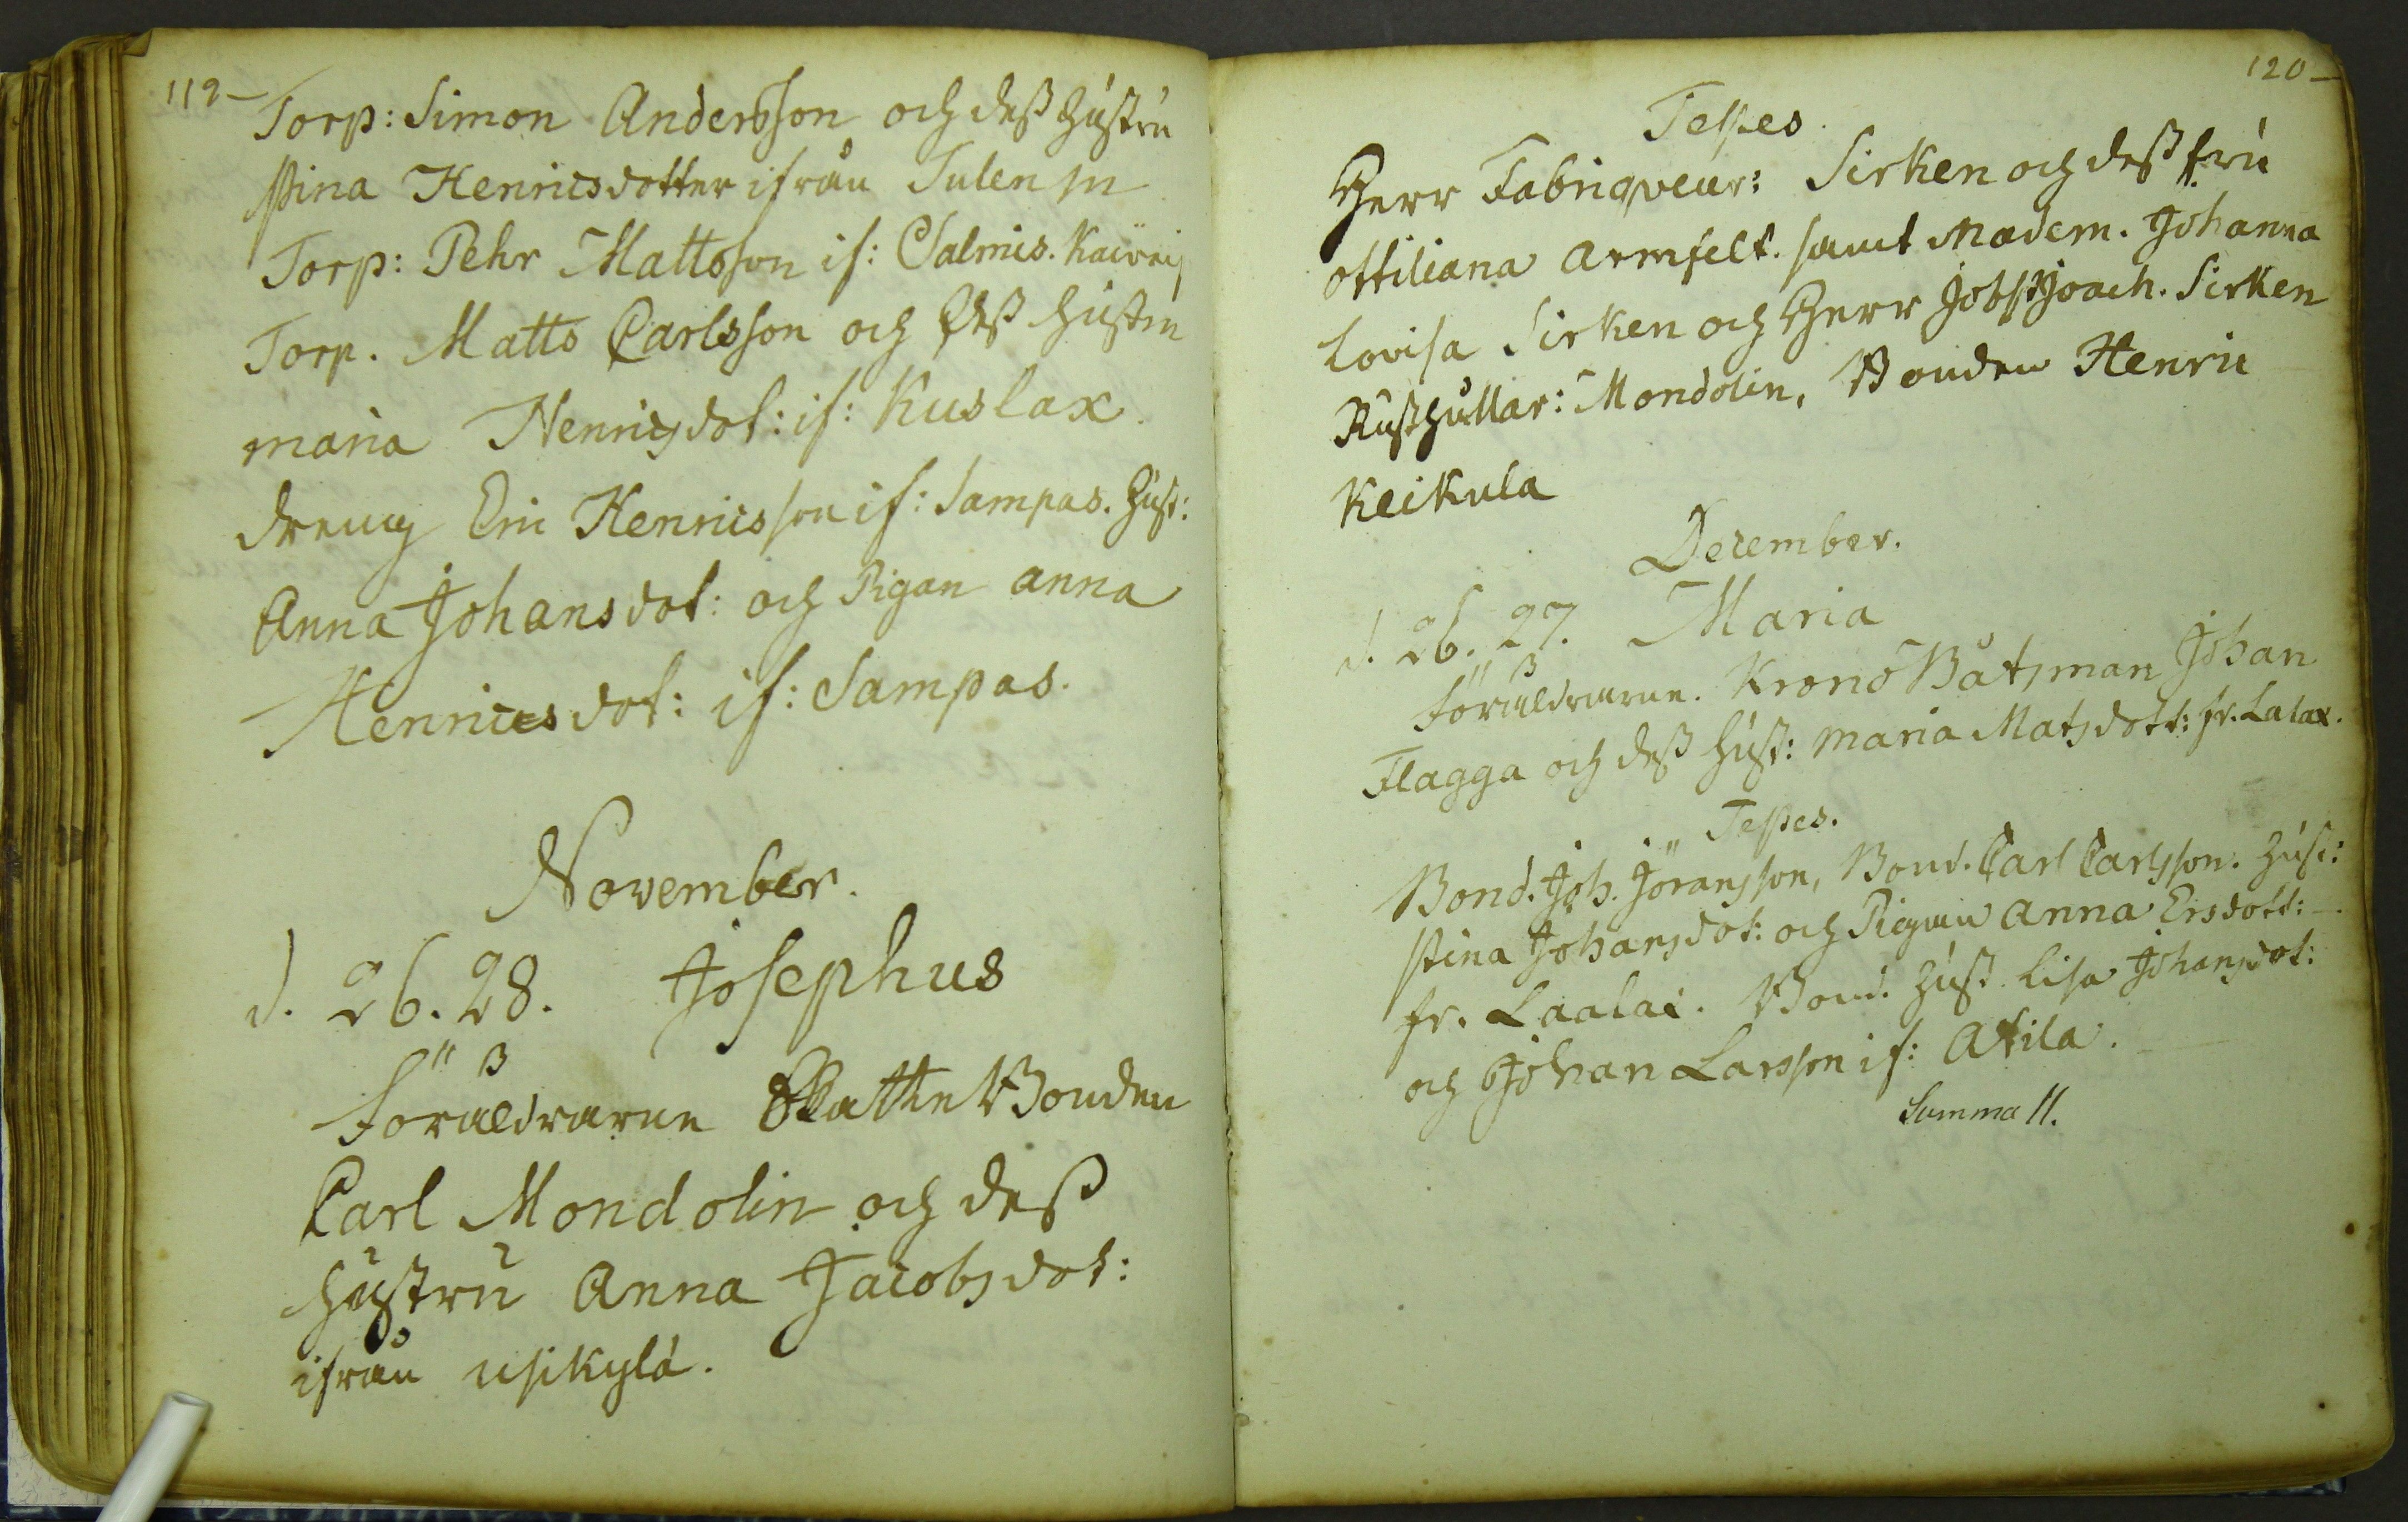 119
Torp: Simon Andersson och dess hustru
Stina Henricsdotter ifrån Tulen
Torp: Pehr Mattsson if: Salmis.
Torp. Matts Carlsson och dess hustru
Maria Henricsdot: if: Kuslax.
dreng Eric Henricsson if: Sampas. hust:
Anna Johansdot: och Pigan Anna
Henricsdot: if: Sampas.
November.
d. 26. 28. Josephus
Föräldrarne Skatte Bonden
Carl Mondolin och dess
hustru Anna Jacobsdot:
ifrån Usikylä.
120
Testes.
Herr Fabriqveur: Sirken och dess fru
Ottiliana Armfelt. samt Madem. Johanna
Lovisa Sirken och Herr Jobst Joach. Sirken
Rusthållar: Mondolin, Bonden Henric
Keikula
December.
d. 26. 27. Maria
Föräldrarne. Krono Båtsman Johan
Flagga och dess hust: Maria Matsdott: fr. Lalax.
Testes.
Bond. Joh. Jöransson, Bond. Carl Carlsson. hust:
Stina Johansdot: och Pigan Anna Ersdott:
fr. Laalai. Bond. hust. Lisa Johansdot:
och Johan Larsson if: Atila.
Summa 11.